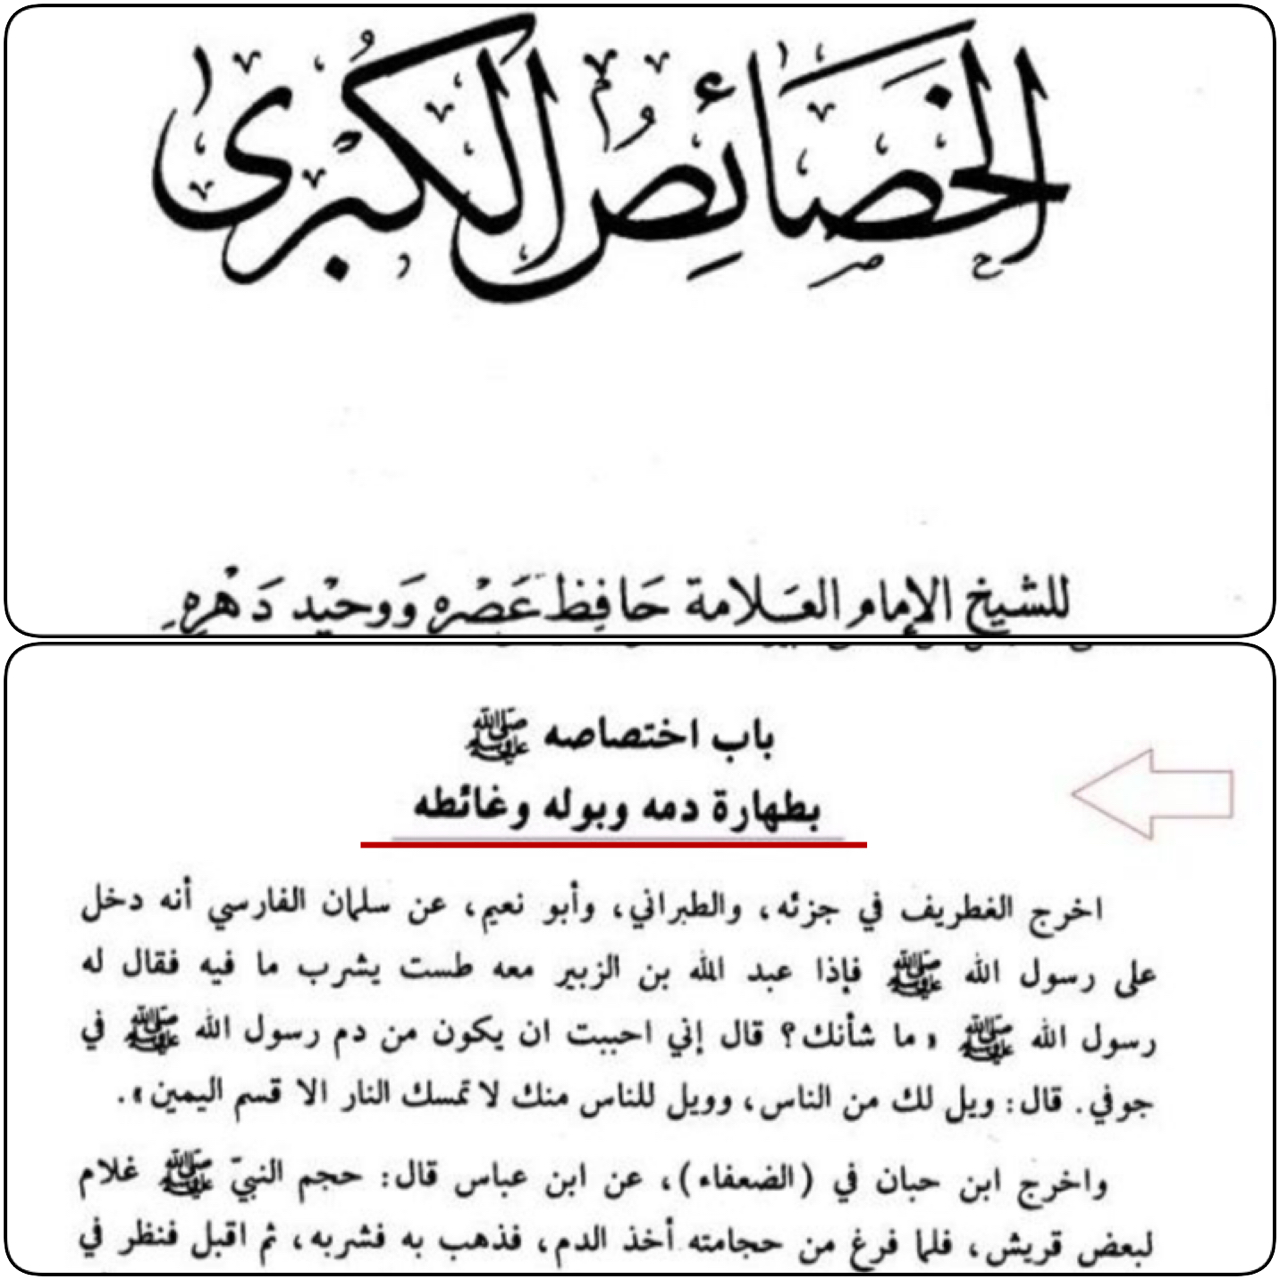 الخصائص الكبرى
للشيخ الإمام العَلامة حَافِظ عَصْره وَوحيْد دَهْرِهِ
باب اختصاصه ﷺ
بطهارة دمه وبوله وغائطه
اخرج الغطريف في جزئه، والطبراني، وأبو نعيم، عن سلمان الفارسي أنه دخل
على رسول الله ﷺ فإذا عبد الله بن الزبير معه طست يشرب ما فيه فقال له
رسول الله ﷺ « ما شأنك؟ قال إني احببت ان يكون من دم رسول الله ﷺ في
جوفي. قال: ويل لك من الناس، وويل للناس منك لا تمسك النار الا قسم اليمين ».
واخرج ابن حبان في (الضعفاء)، عن ابن عباس قال: حجم النبيّ ﷺ غلام
لبعض قريش، فلما فرغ من حجامته أخذ الدم، فذهب به فشربه، ثم اقبل فنظر في